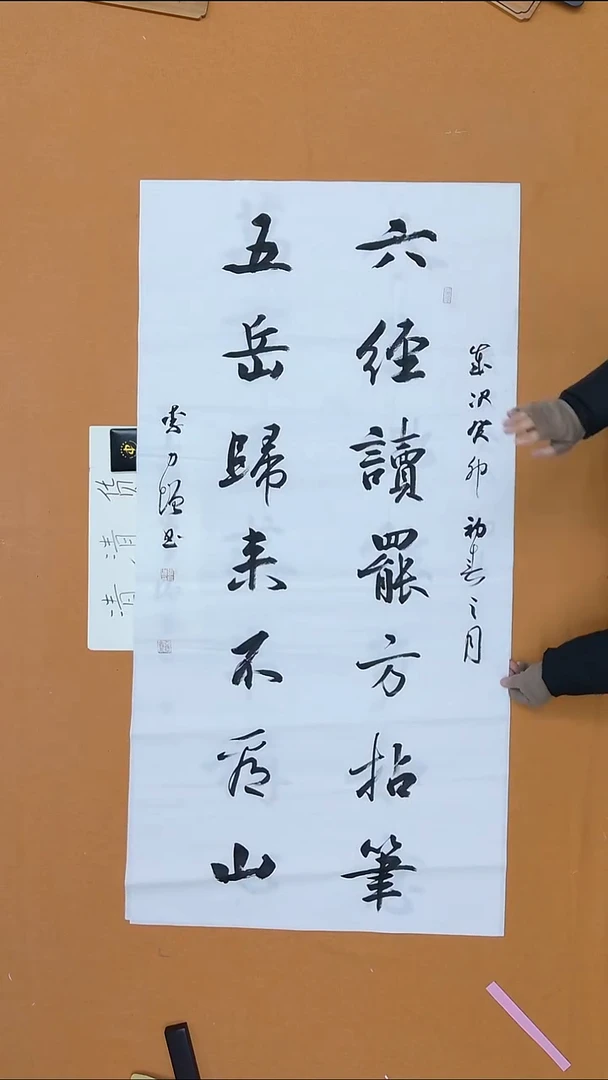 歲次癸卯初春之月
六經讀罷方拈筆
五岳歸来不看山